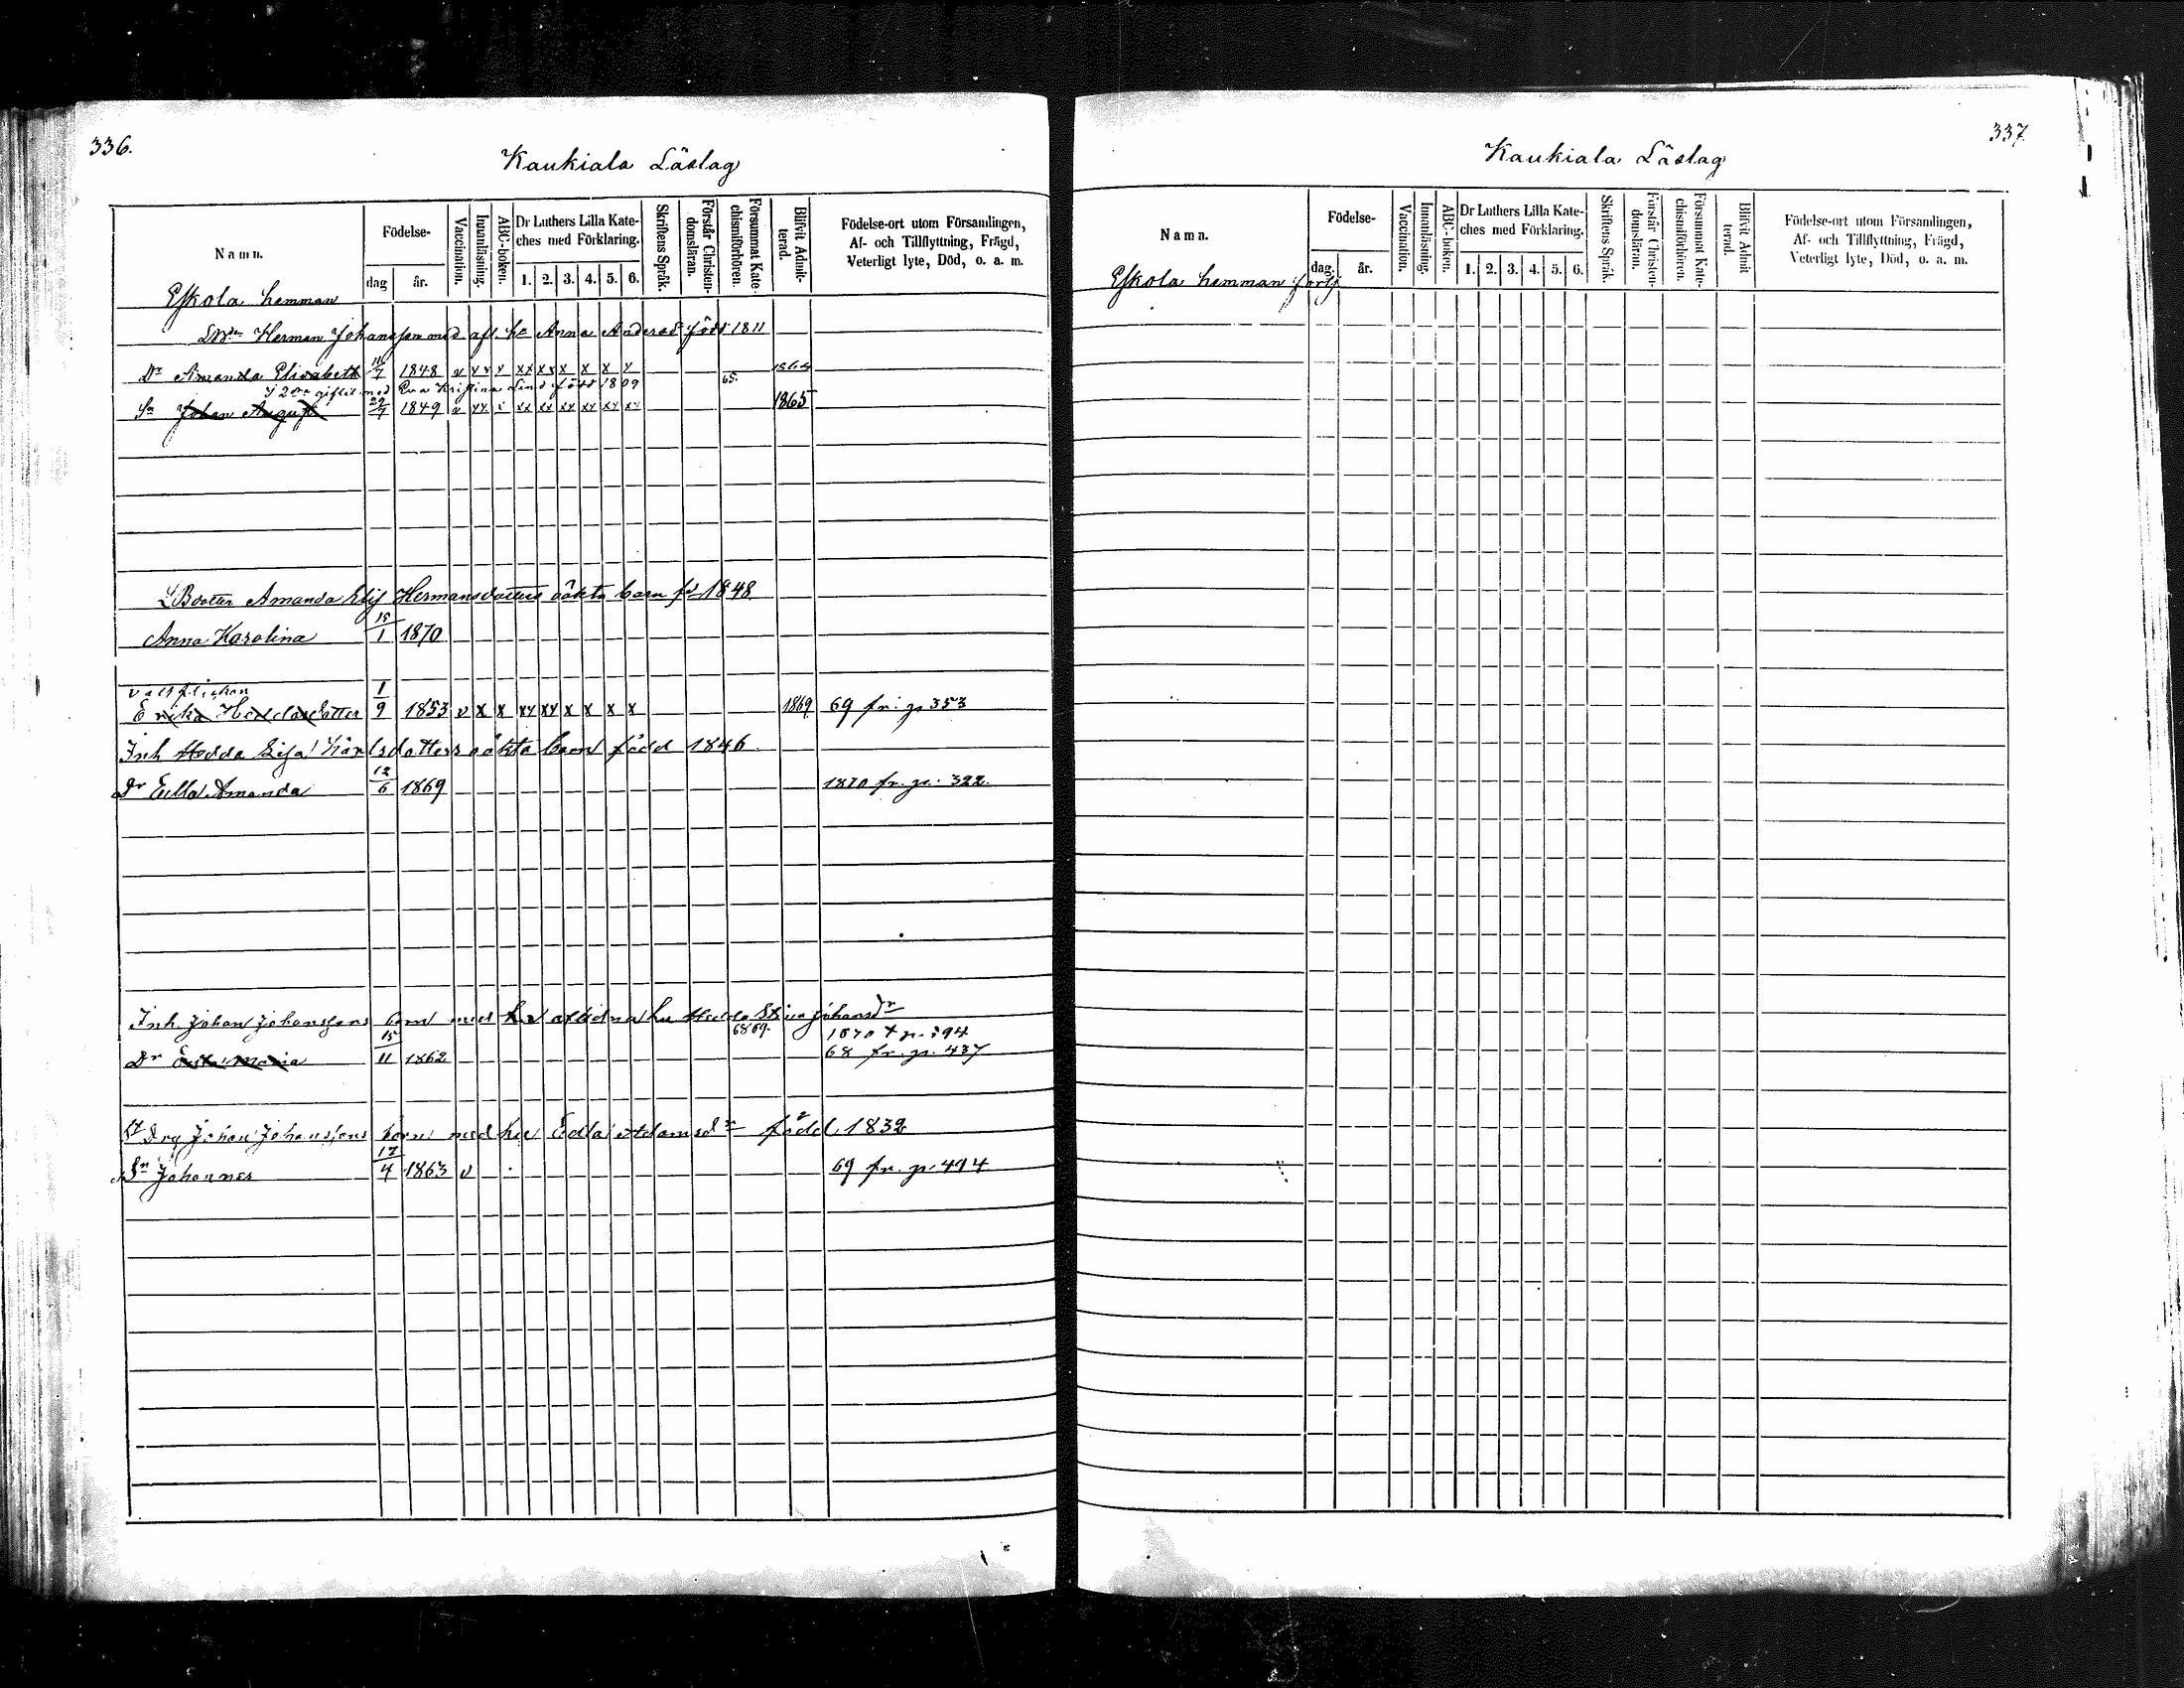 336.
Kaukiala Läslag
Namn.
Födelse-
dag
år.
Vaccination.
Innanläsning.
ABC-boken.
Dr Luthers Lilla Kate-
ches med Förklaring.
1. 2. 3. 4. 5. 6.
Skriftens Språk.
Förstår Christen-
domsläran.
Försummat Kate-
chismiförhören.
Blifvit Admit-
terad.
Födelse-ort utom Församlingen,
Af- och Tillflyttning, Frägd,
Veterligt lyte, Död, o. a. m.
Eskola hemman
Herman Johansson med afl. h. Anna Andersd. född 1811
Dr Amanda Elisabeth 11/7 1848 v xx x xx xx x x x x 1864
I 2dra giftet med Eva Kristina Lind född 1809 65.
Sn Johan August 29/7 1849 v xx x xx xx xx xx xx xx 1865
Bdotter Amanda Elis Hermansdotters oäkta barn fd 1848
Anna Karolina 15/1 1870
Erika Heddasdotter 1/9 1853 v x x xx xx x x x x 1869 69 fr. p 353
Inh Hedda Lisa Karlsdotters oäkta barn född 1846
Dr Eulla Amanda 12/6 1869 1870 fr. p. 322.
Inh. Johan Johanssons barn med aflidna hu Hedda Stina Johansdr
6869. 1870 p. 394
Dr Maria 15/11 1862 68 fr. p. 437
Drg Johan Johanssons barn med hu Edla Adamsdr född 1832
Sn Johannes 17/4 1863 v 69 fr. p. 494
337.
Kaukiala Läslag
Namn.
Födelse-
dag.
år.
Vaccination.
Innanläsning.
ABC-boken.
Dr Luthers Lilla Kate-
ches med Förklaring.
1. 2. 3. 4. 5. 6.
Skriftens Språk.
Förstår Christen-
domsläran.
Försummat Kate-
chismiförhören.
Blifvit Admit
terad.
Födelse-ort utom Församlingen,
Af- och Tillflyttning, Frägd,
Veterligt lyte, Död, o. a. m.
Eskola hemman forts